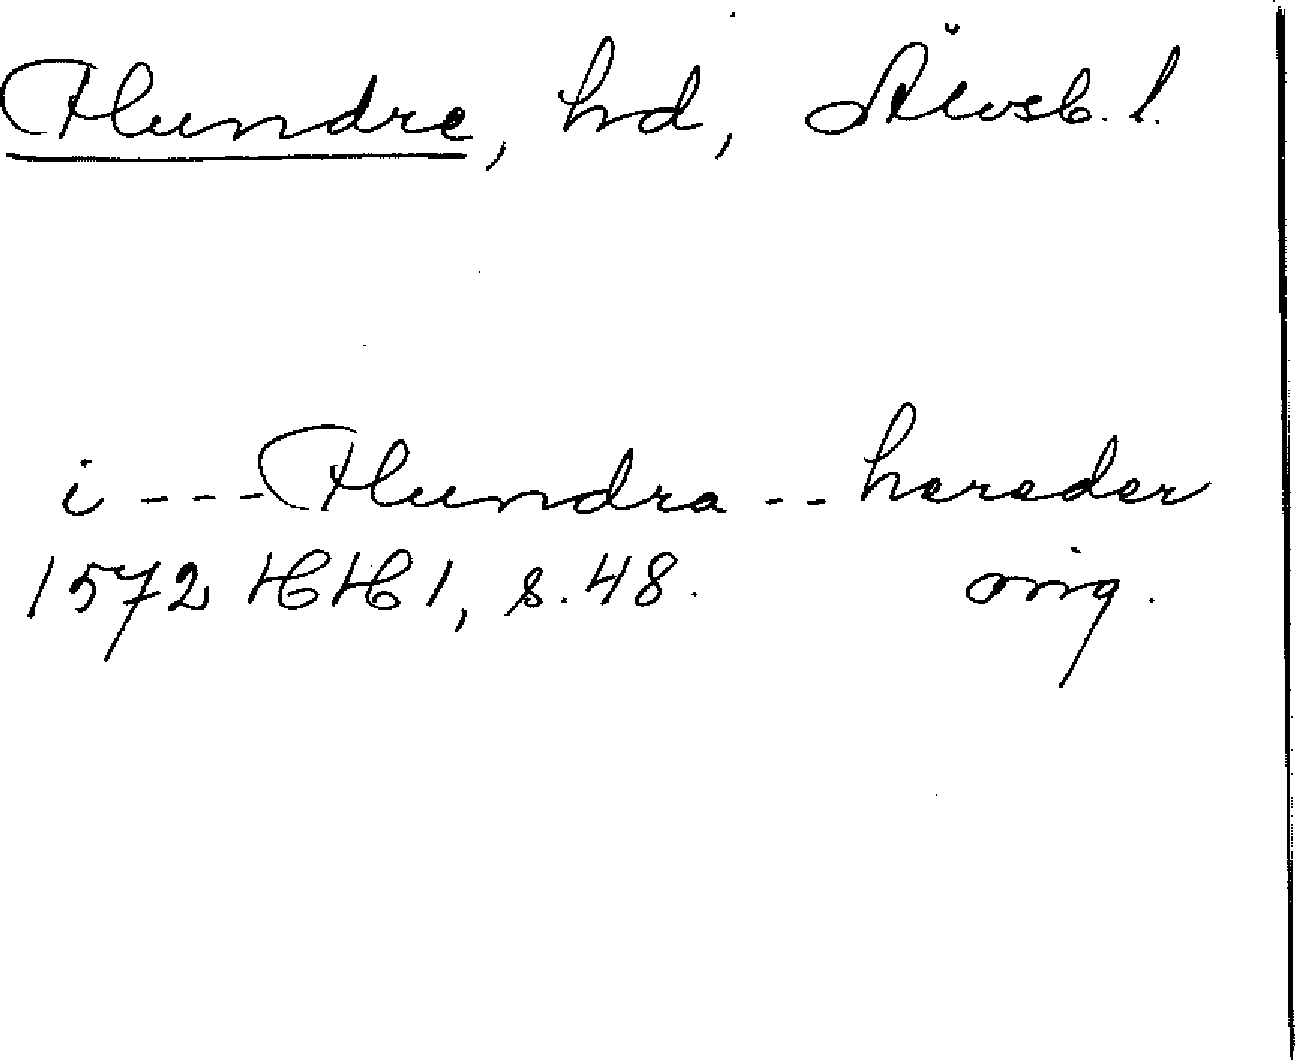 Flundre, hd, Älvsb. l.
i --- Flundra -- hereder
1572 HH 1, s. 48. orig.